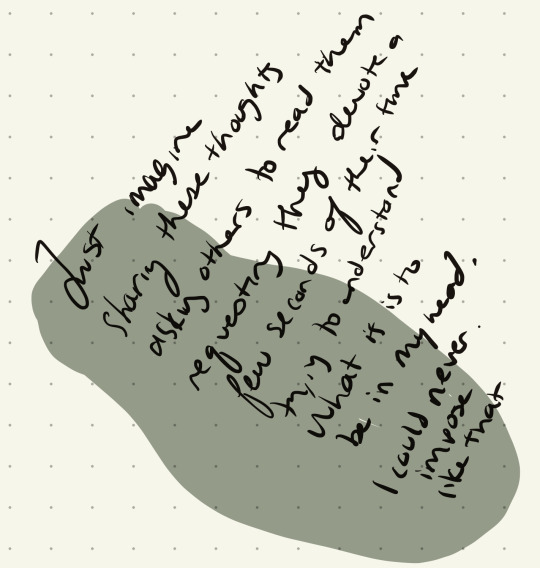 Just imagine
sharing these thoughts
asking others to read them
requesting they devote a
few seconds of their time
trying to understand
what it is to
be in my head.
I could never.
impose
like that